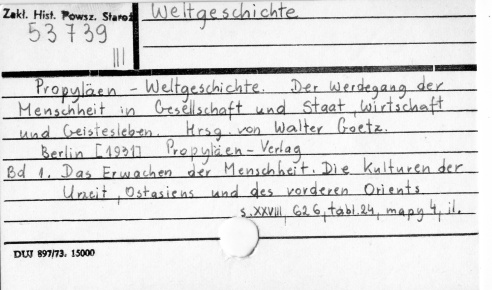 Zakl. Hist. Powsz. Staroż
53739
III
Weltgeschichte
Propyläen - Weltgeschichte. Der Werdegang der
Menschheit in Gesellschaft und Staat, Wirtschaft
und Geistesleben. Hrsg. von Walter Goetz.
Berlin [1931] Propyläen-Verlag
Bd 1. Das Erwachen der Menschheit. Die Kulturen der
Urzeit, Ostasiens und des vorderen Orients.
s. XXVIII, 626, tabl. 24, mapy 4, il.
DUJ 897/73. 15000